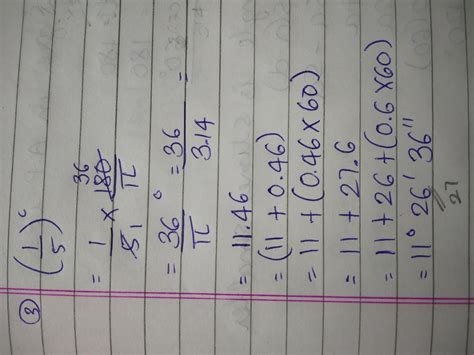 ③ (1/5)ᶜ
= 1/5 1 × 36 180/π
= 36°/π = 36/3.14 =
= 11.46
= (11 + 0.46)
= 11 + (0.46 × 60)
= 11 + 27.6
= 11 + 26 + (0.6 × 60)
= 11° 26' 36"
27